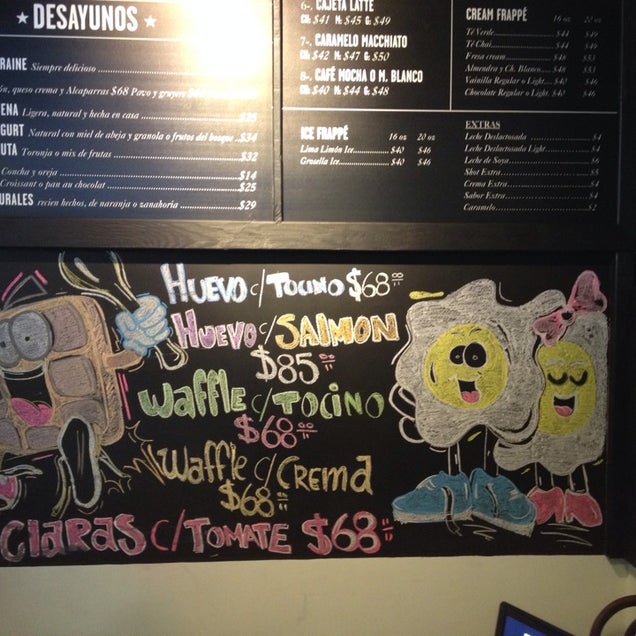 ★ DESAYUNOS ★
RAINE Siempre delicioso
ón, queso crema y Alcaparras $68 Pavo y gruyere
ENA Ligera, natural y hecha en casa $25
GURT Natural con miel de abeja y granola o frutos del bosque $34
UTA Toronja o mix de frutas $32
Concha y oreja $14
Croissant o pan au chocolat $25
URALES recien hechos, de naranja o zanahoria $29
6-. CAJETA LATTE
CH: $41 M: $45 G: $49
7-. CARAMELO MACCHIATO
CH: $42 M: $47 G: $50
8-. CAFÉ MOCHA O M. BLANCO
CH: $40 M: $44 G: $48
ICE FRAPPÉ 16 oz 20 oz
Lima Limón Ice $40 $46
Grosella Ice $40 $46
CREAM FRAPPÉ 16 oz 20 oz
Té Verde $44 $49
Té Chai $44 $49
Fresa cream $48 $53
Almendra y Ch. Blanco $48 $53
Vainilla Regular o Light $40 $46
Chocolate Regular o Light $40 $46
EXTRAS
Leche Deslactosada $4
Leche Deslactosada Light $4
Leche de Soya $6
Shot Extra $5
Crema Extra $4
Sabor Extra $4
Caramelo $2
HUEVO c/ TOCINO $68.00
HUEVO c/ SALMON
$85.00
Waffle c/ TOCINO
$68.00
Waffle c/ CREMA
$68.00
Claras c/ TOMATE $68.00